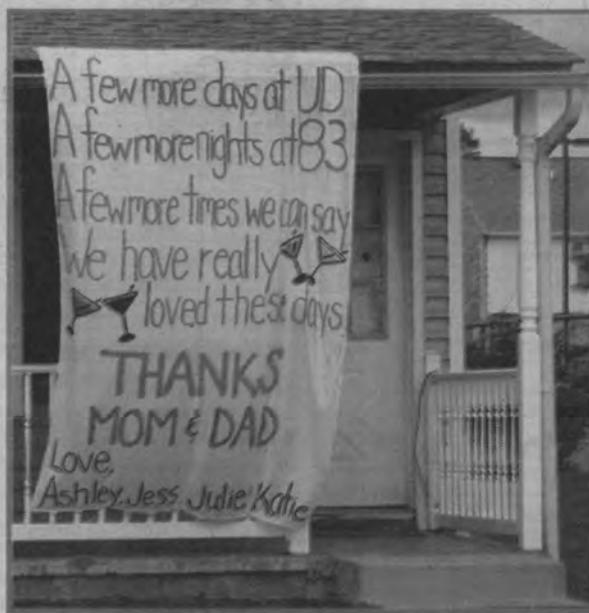 A few more days at UD
A few more nights at 83
A few more times we can say
We have really
loved these days
THANKS
MOM & DAD
Love,
Ashley, Jess, Julie, Katie